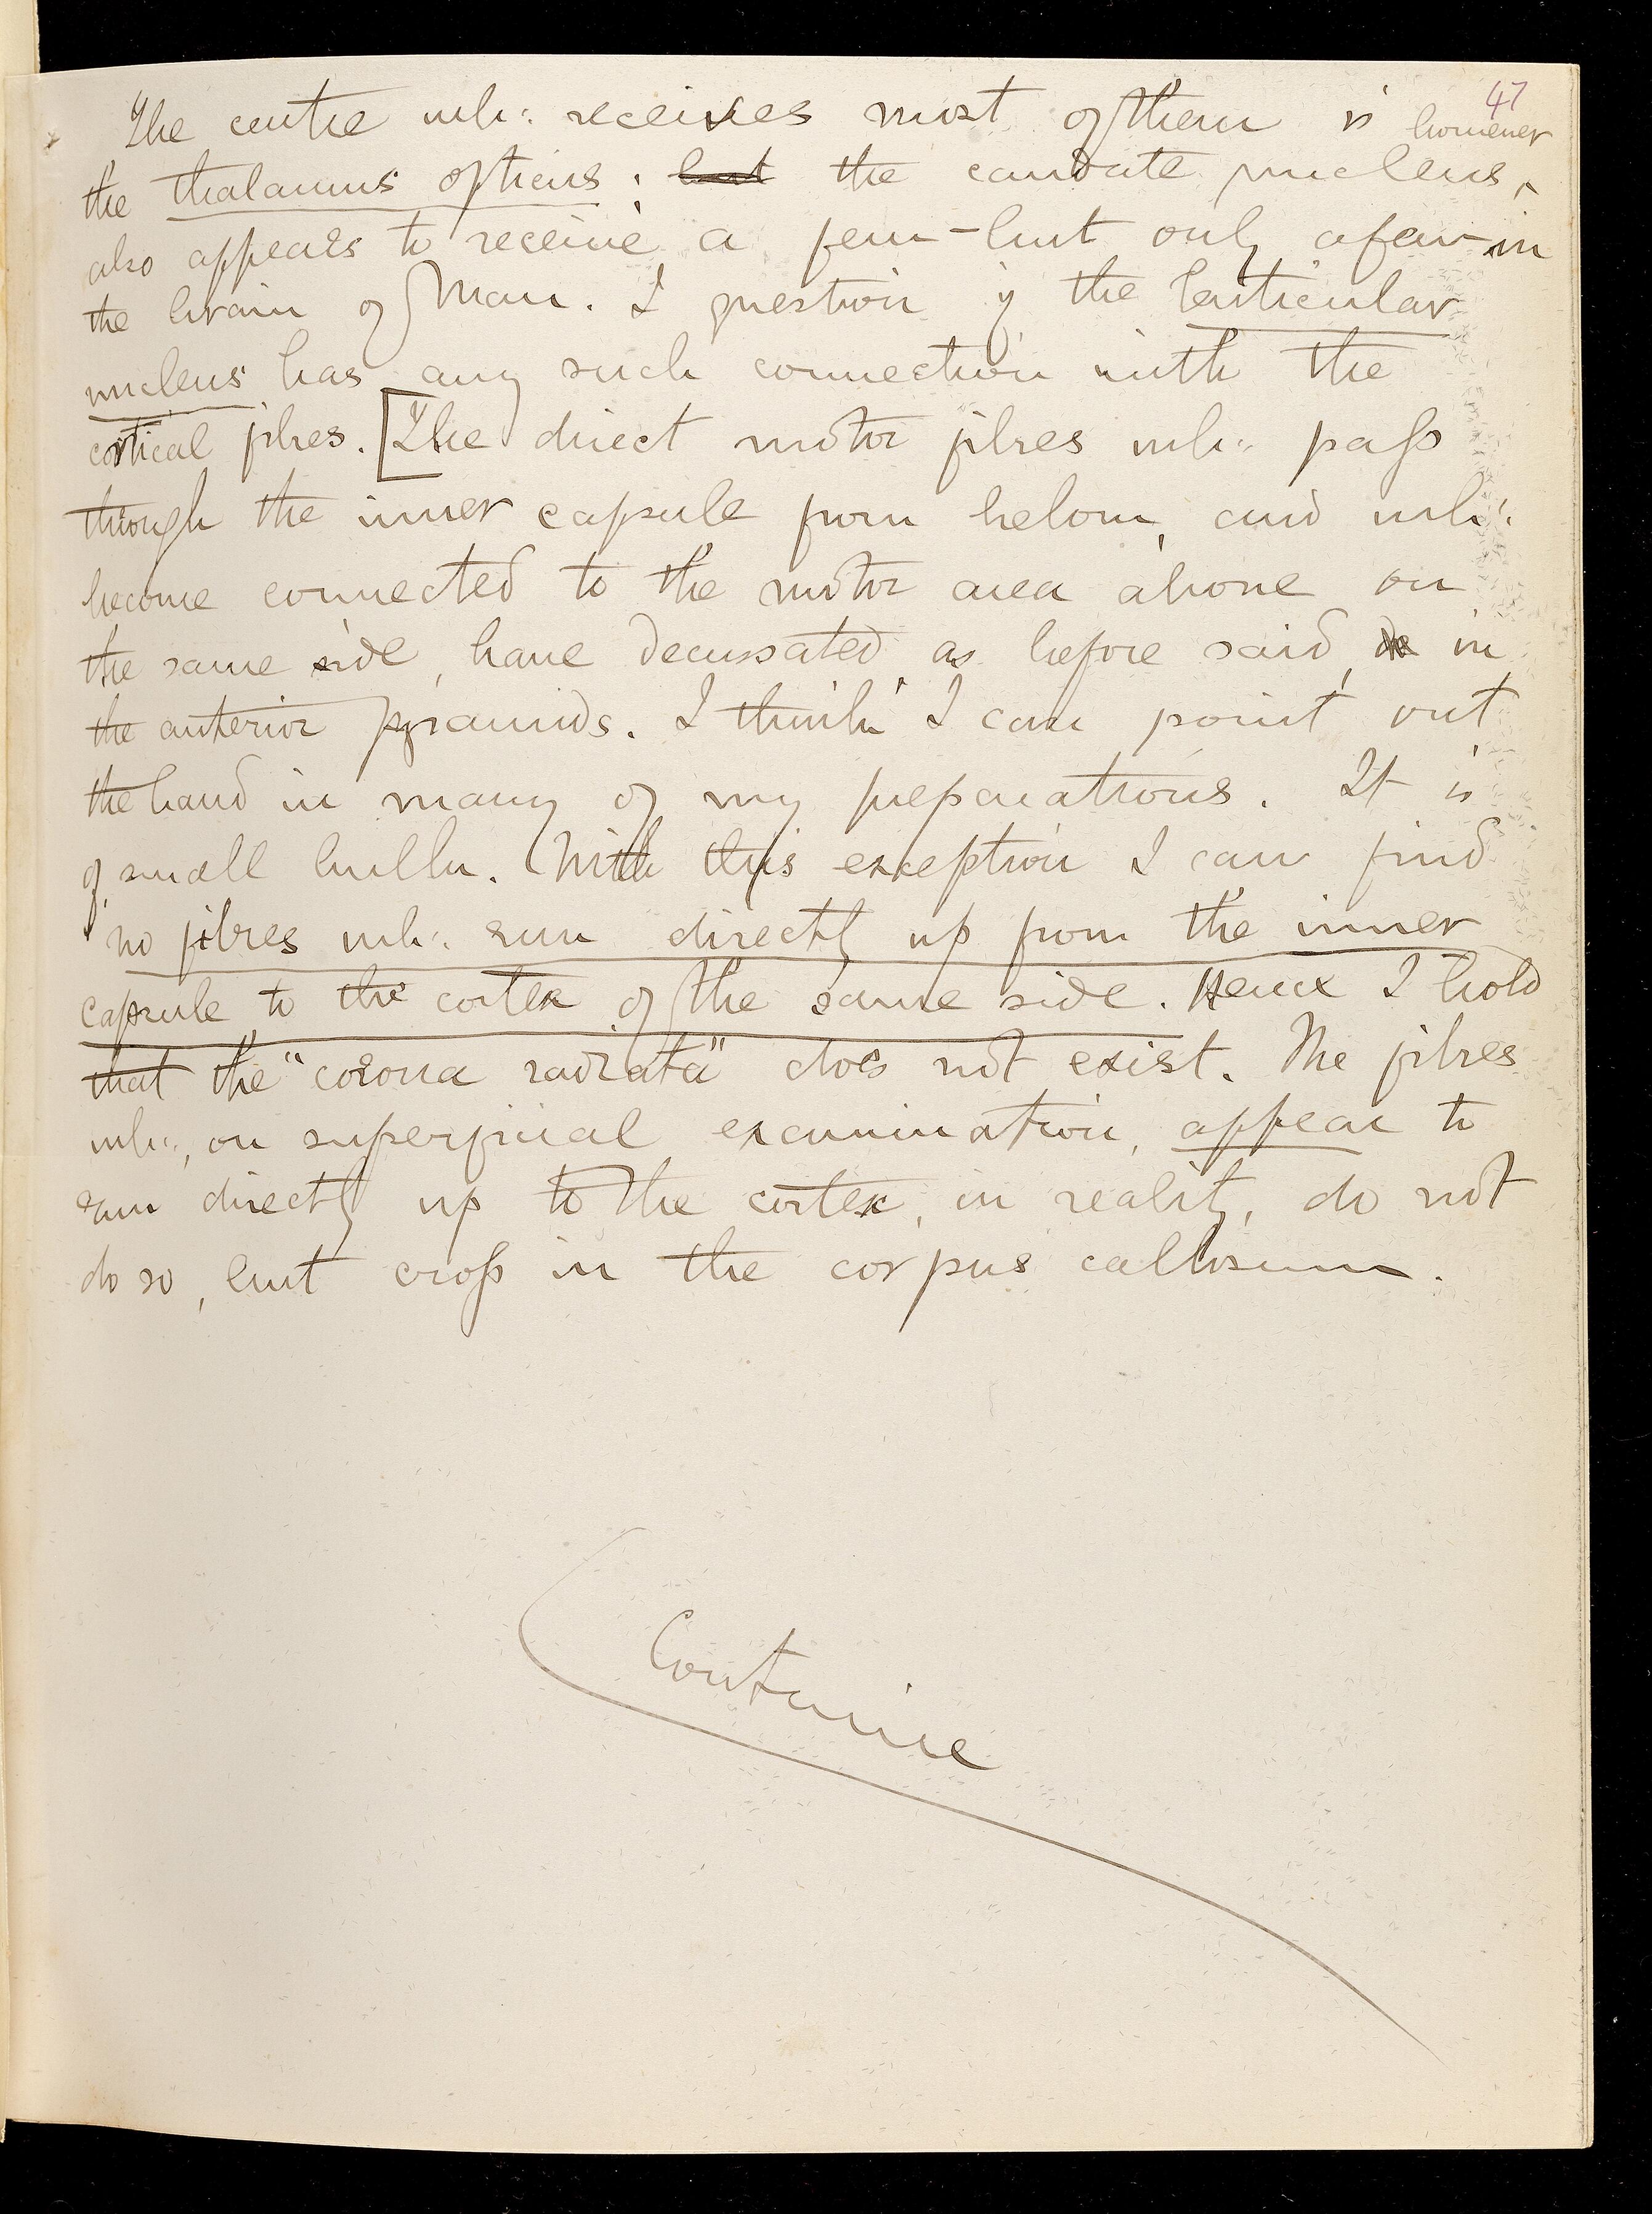 47
The centre wh: receives most of them is
the thalamus opticus; but the caudate nucleus, however
also appears to receive a few - but only a few - in
the brain of Man. I question if the lenticular
nucleus has any such connection with the
cortical fibres. [The direct motor fibres wh: pass
through the inner capsule from below, and wh:
become connected to the motor area above on
the same side, have decussated as before said, in
the anterior pyramids. I think I can point out
the band in many of my preparations. It is
of small bulk. With this exception I can find
no fibres wh: run directly up from the inner
capsule to the cortex of the same side. Hence I hold
that the "corona radiata" does not exist. The fibres
wh:, on superficial examination, appear to
run directly up to the cortex, in reality, do not
do so, but cross in the corpus callosum.
Continue